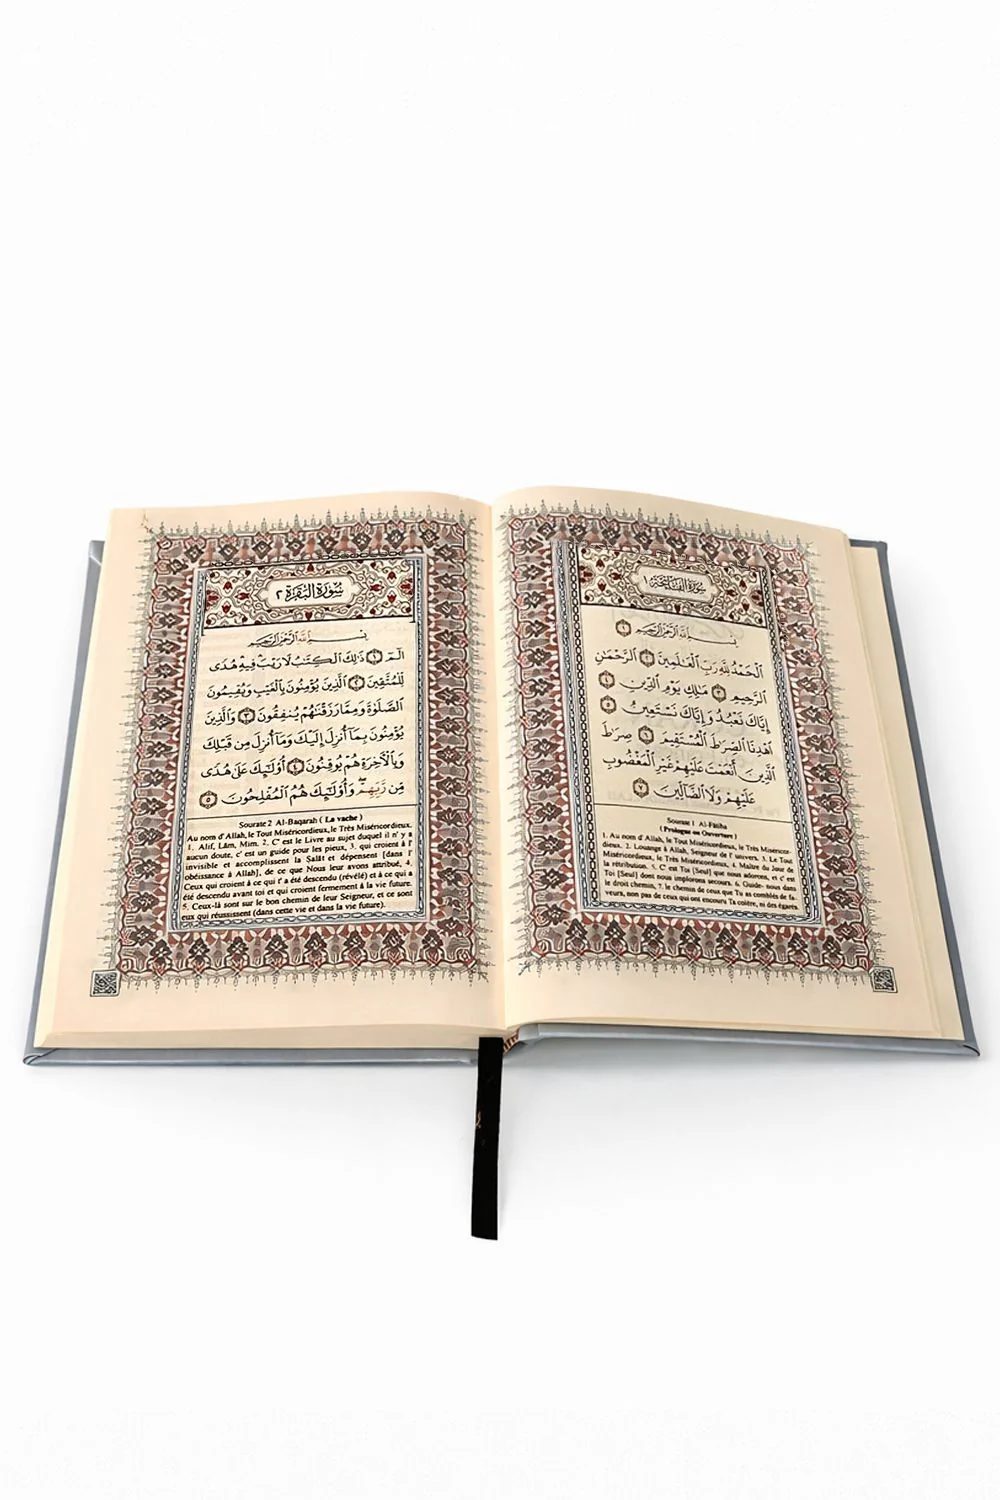 سورة الفاتحة ١
بسم الله الرحمن الرحيم ١
ٱلْحَمْدُ لِلَّهِ رَبِّ ٱلْعَٰلَمِينَ ٢ ٱلرَّحْمَٰنِ
ٱلرَّحِيمِ ٣ مَٰلِكِ يَوْمِ ٱلدِّينِ ٤
إِيَّاكَ نَعْبُدُ وَإِيَّاكَ نَسْتَعِينُ ٥
ٱهْدِنَا ٱلصِّرَٰطَ ٱلْمُسْتَقِيمَ ٦ صِرَٰطَ
ٱلَّذِينَ أَنْعَمْتَ عَلَيْهِمْ غَيْرِ ٱلْمَغْضُوبِ
عَلَيْهِمْ وَلَا ٱلضَّآلِّينَ ٧
Sourate 1 Al-Fātiha
(Prologue ou Ouverture)
1. Au nom d'Allah, le Tout Miséricordieux, le Très Miséricor-
dieux. 2. Louange à Allah, Seigneur de l' univers. 3. Le Tout
Miséricordieux, le Très Miséricordieux, 4. Maître du Jour de
la rétribution. 5. C' est Toi [Seul] que nous adorons, et c' est
Toi [Seul] dont nous implorons secours. 6. Guide- nous dans
le droit chemin, 7. le chemin de ceux que Tu as comblés de fa-
veurs, non pas de ceux qui ont encouru Ta colère, ni des égarés.
سورة البقرة ٢
بسم الله الرحمن الرحيم
الٓمٓ ١ ذَٰلِكَ ٱلْكِتَٰبُ لَا رَيْبَ فِيهِ هُدًى
لِّلْمُتَّقِينَ ٢ ٱلَّذِينَ يُؤْمِنُونَ بِٱلْغَيْبِ وَيُقِيمُونَ
ٱلصَّلَوٰةَ وَمِمَّا رَزَقْنَٰهُمْ يُنفِقُونَ ٣ وَٱلَّذِينَ
يُؤْمِنُونَ بِمَآ أُنزِلَ إِلَيْكَ وَمَآ أُنزِلَ مِن قَبْلِكَ
وَبِٱلْءَاخِرَةِ هُمْ يُوقِنُونَ ٤ أُو۟لَٰٓئِكَ عَلَىٰ هُدًى
مِّن رَّبِّهِمْ ۖ وَأُو۟لَٰٓئِكَ هُمُ ٱلْمُفْلِحُونَ ٥
Sourate 2 Al-Baqarah ( La vache )
Au nom d'Allah, le Tout Miséricordieux, le Très Miséricordieux.
1. Alif, Lâm, Mim. 2. C' est le Livre au sujet duquel il n' y a
aucun doute, c' est un guide pour les pieux, 3. qui croient à l'
invisible et accomplissent la Ṣalāt et dépensent [dans l'
obéissance à Allah], de ce que Nous leur avons attribué, 4.
Ceux qui croient à ce qui t' a été descendu (révélé) et à ce qui a
été descendu avant toi et qui croient fermement à la vie future.
5. Ceux-là sont sur le bon chemin de leur Seigneur, et ce sont
eux qui réussissent (dans cette vie et dans la vie future).